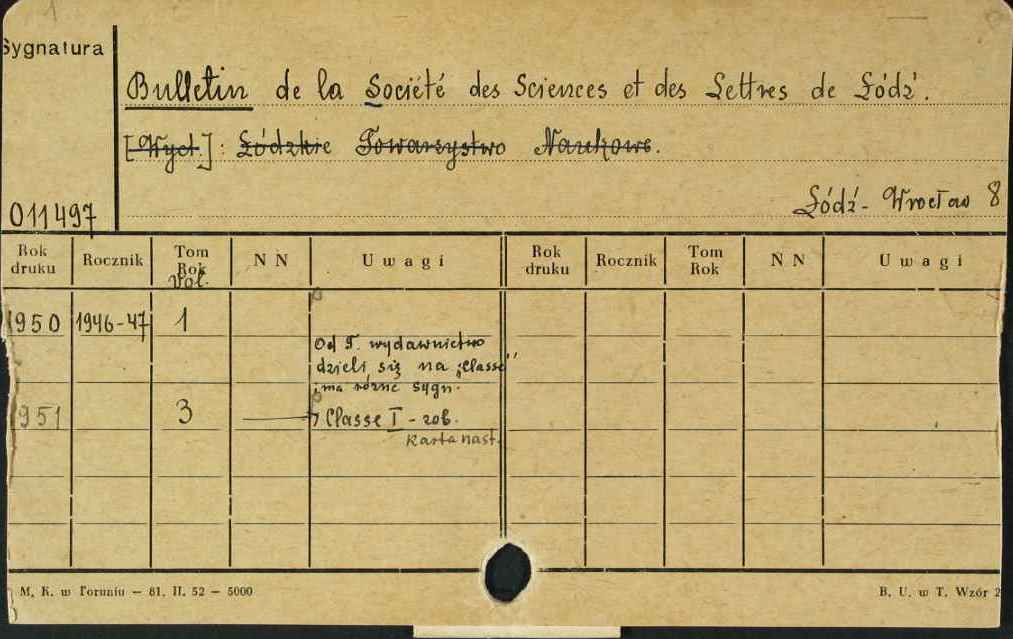 Sygnatura
Bulletin de la Société des Sciences et des Lettres de Łódź.
[Wyd.]: Łódzkie Towarzystwo Naukowe.
Łódź - Wrocław 8
011497
Rok druku Rocznik Tom Rok Vol. N N Uwagi Rok druku Rocznik Tom Rok N N Uwagi
1950 1946-47 1
Od T. wydawnictwo
dzieli się na „Classe”
i ma różne sygn.
1951 3 Classe I - zob.
Karta nast.
M. K. w Toruniu — 81. II. 52 — 5000 B. U. w T. Wzór 2